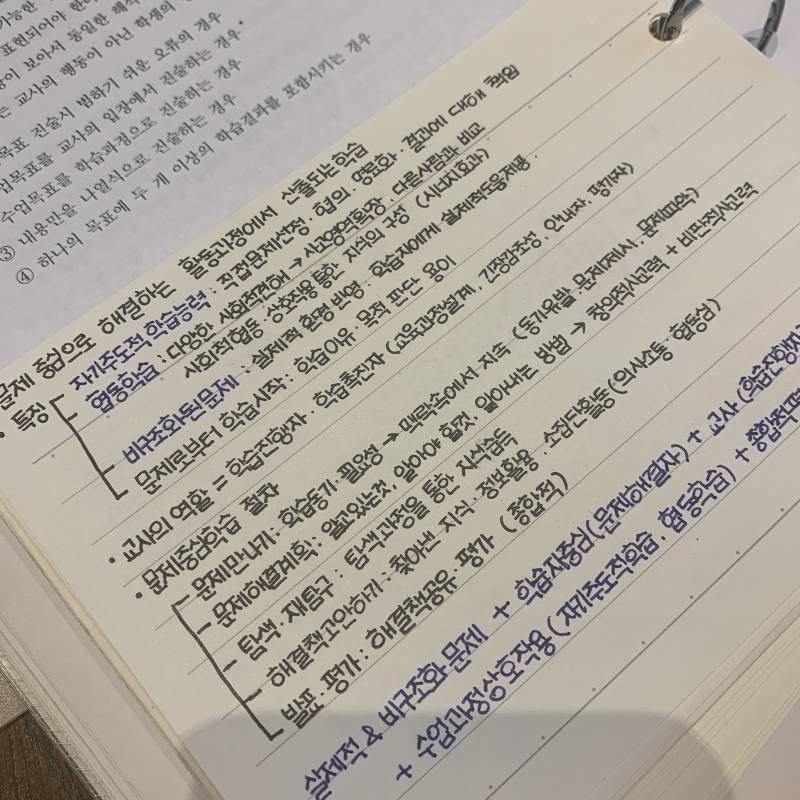 가능한
표현되어야 한
이 보아서 동일한 해석
는 교사의 행동이 아닌 학생의
목표 진술시 범하기 쉬운 오류의 경우
업목표를 교사의 입장에서 진술하는 경우
수업목표를 학습과정으로 진술하는 경우
③ 내용만을 나열식으로 진술하는 경우
④ 하나의 목표에 두 개 이상의 학습결과를 포함시키는 경우
문제 중심으로 해결하는 활동과정에서 산출되는 학습
• 특징
자기주도적 학습능력 : 직접문제선정 · 협의 · 명료화 · 결과에 대해 책임
협동학습 : 다양한 사회적견해 → 사고영역확장 · 다른사람과 비교
사회적협동 · 상호작용 통한 지식의 구성 (시너지효과)
비구조화된 문제 : 실제적 환경 반영 · 학습자에게 실제적도움제공
문제로부터 학습시작 : 학습이유 · 목적 판단 용이
• 교사의 역할 = 학습진행자 · 학습촉진자 (교육과정설계, 긴장감조성, 안내자, 평가자)
• 문제중심학습 절차
문제만나기 : 학습동기 · 필요성 → 맥락속에서 지속 (동기유발 : 문제제시, 문제파악)
문제해결계획 : 알고있는것, 알아야 할것, 알아내는 방법 → 창의적사고력 + 비판적사고력
탐색 · 재탐구 : 탐색과정을 통한 지식습득
해결책고안하기 : 찾아낸 지식 · 정보활용 · 소집단활동 (의사소통 · 협동심)
발표 · 평가 : 해결책공유 · 평가 (종합적)
실제적 & 비구조화 문제 + 학습자중심(문제해결자) + 교사 (학습진행자
+ 수업과정상호작용 (자기주도적학습, 협동학습) + 종합적평